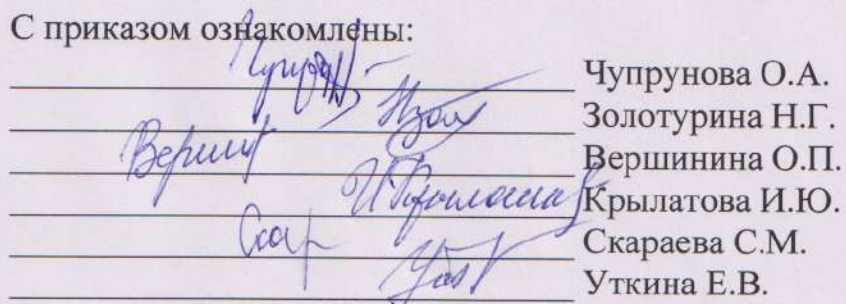 С приказом ознакомлены:
Чупрунова О.А.
Золотурина Н.Г.
Вершинина О.П.
Крылатова И.Ю.
Скараева С.М.
Уткина Е.В.